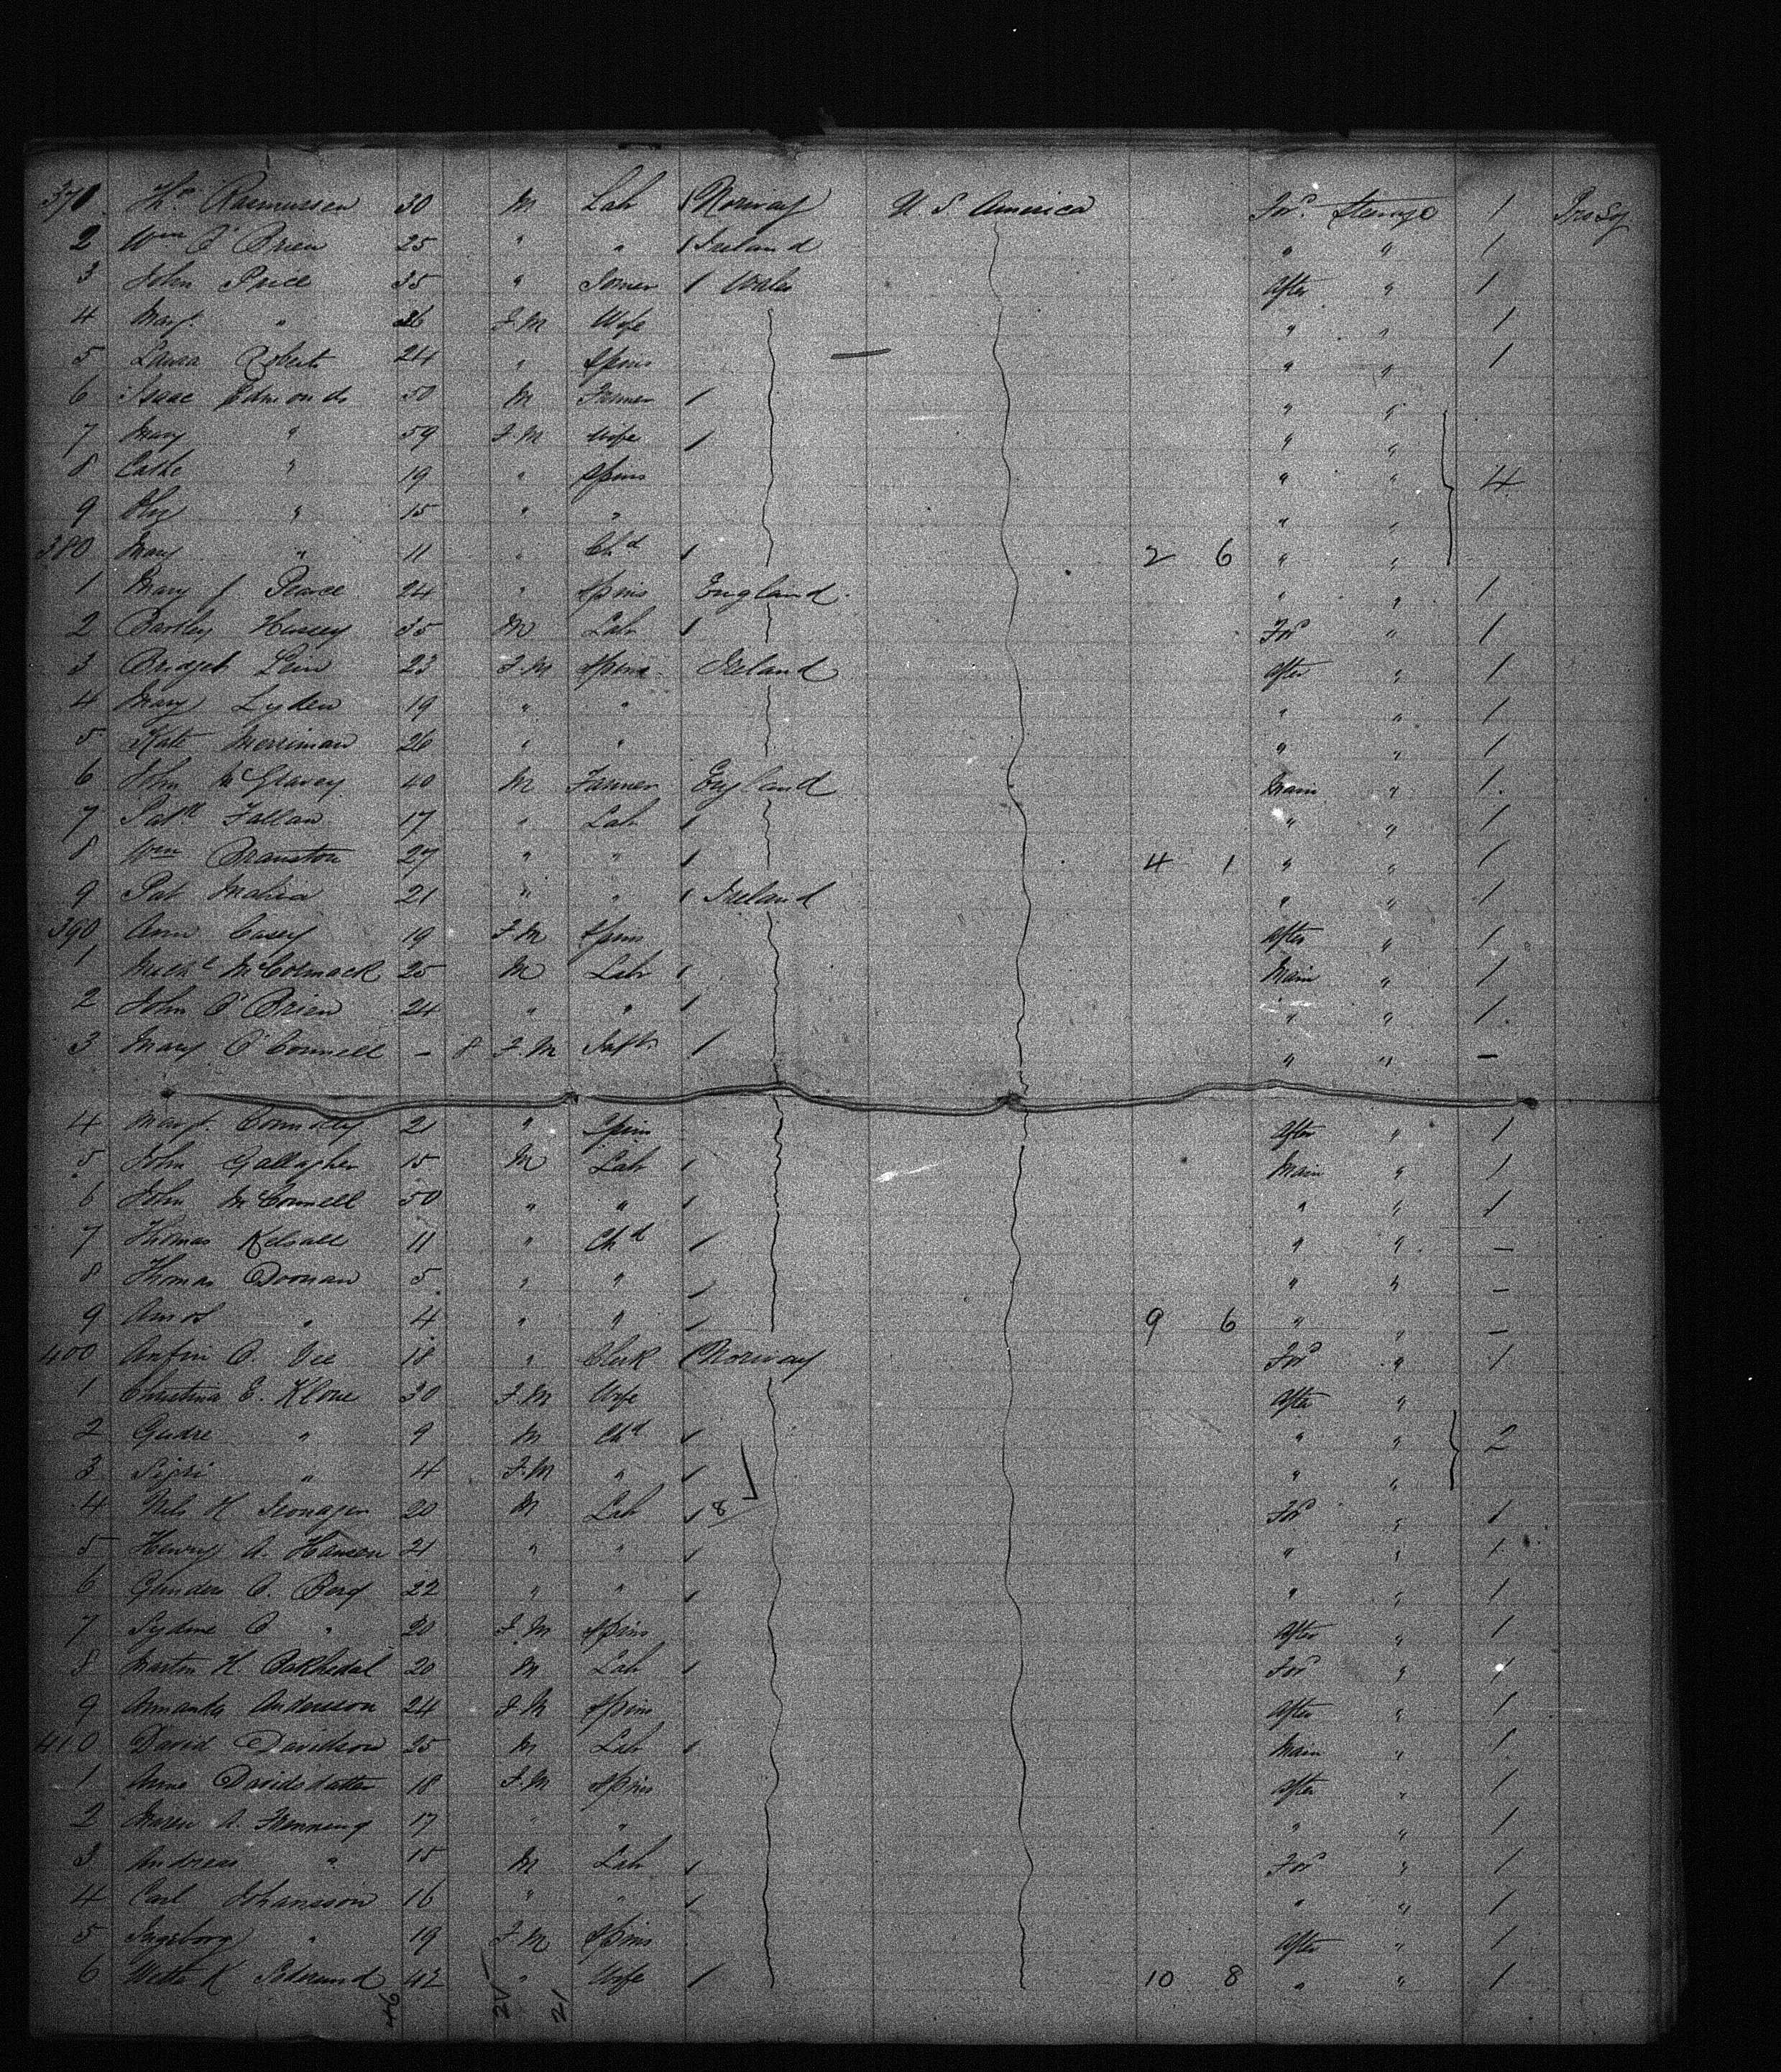 371 Thos Rasmussen 30 M Lab 1 Norway U. S. America For'd Steerage 1
2 Wm O'Brien 25 " " 1 Ireland " " 1
3 John Price 35 " Farmer 1 Wales After " 1
4 Mary " 36 F.M Wife " " 1
5 Laura Roberts 24 " Spins " " 1
6 Isaac Edmonds 50 M Farmer 1 " "
7 Mary " 59 F.M Wife 1 " "
8 Cathe " 19 " Spins " " 4
9 " 15 " " " "
380 Mary " 11 " Chd 1 2 6 " "
1 Mary J Pearce 24 " Spins England " " 1
2 Bartley Hussey 35 M Lab 1 Ford " 1
3 Bridget 23 F.M Spins Ireland After " 1
4 Mary Lyden 19 " " " " 1
5 Kate Merriman 26 " " " " 1
6 John McGlavey 40 M Farmer England Main " 1
7 Patk Fallan 17 " Lab 1 " " 1
8 Wm Branston 27 " " 1 4 1 " " 1
9 Pat 21 " " 1 Ireland " " 1
390 Ann Casey 19 F.M Spins After " 1
1 Michl McCormack 25 M Lab 1 Main " 1
2 John O'Brien 24 " " 1 " " 1
3 Mary O'Connell - 8 F.M Inft 1 " " -
4 Margt Connolly 21 " Spin After " 1
5 John Gallagher 15 M Lab 1 Main " 1
6 John McConnell 50 " " 1 " " 1
7 Thomas Kelsall 11 " Chd 1 " " -
8 Thomas Doonan 5 " " 1 " " -
9 " 4 " " 1 9 6 " " -
400 Anfin O. Vee 18 " Clerk 1 Norway Ford " 1
1 Christina E. Klove 30 F.M Wife After "
2 Gudre " 9 M Chd 1 " " 2
3 Sigri " 4 F.M " 1 " "
4 Nils H 20 M Lab 1 8 Ford " 1
5 Henry A. Hansen 21 " " 1 " " 1
6 Gunder O. Berg 22 " " 1 " " 1
7 O " 20 F.M Spins After " 1
8 Martin H. 20 M Lab 1 Ford " 1
9 Amanda Andersson 24 F.M Spins After " 1
410 David Davidson 25 M Lab 1 Main " 1
1 Anne Davidsdatter 18 F.M Spins After " 1
2 Maren A. Henning 17 " " " " 1
3 Andreas " 15 M Lab 1 Ford " 1
4 Carl Johansson 16 " " 1 " " 1
5 Ingeborg " 19 F.M Spins After " 1
6 K 42 " Wife 1 10 8 " " 1
46 21